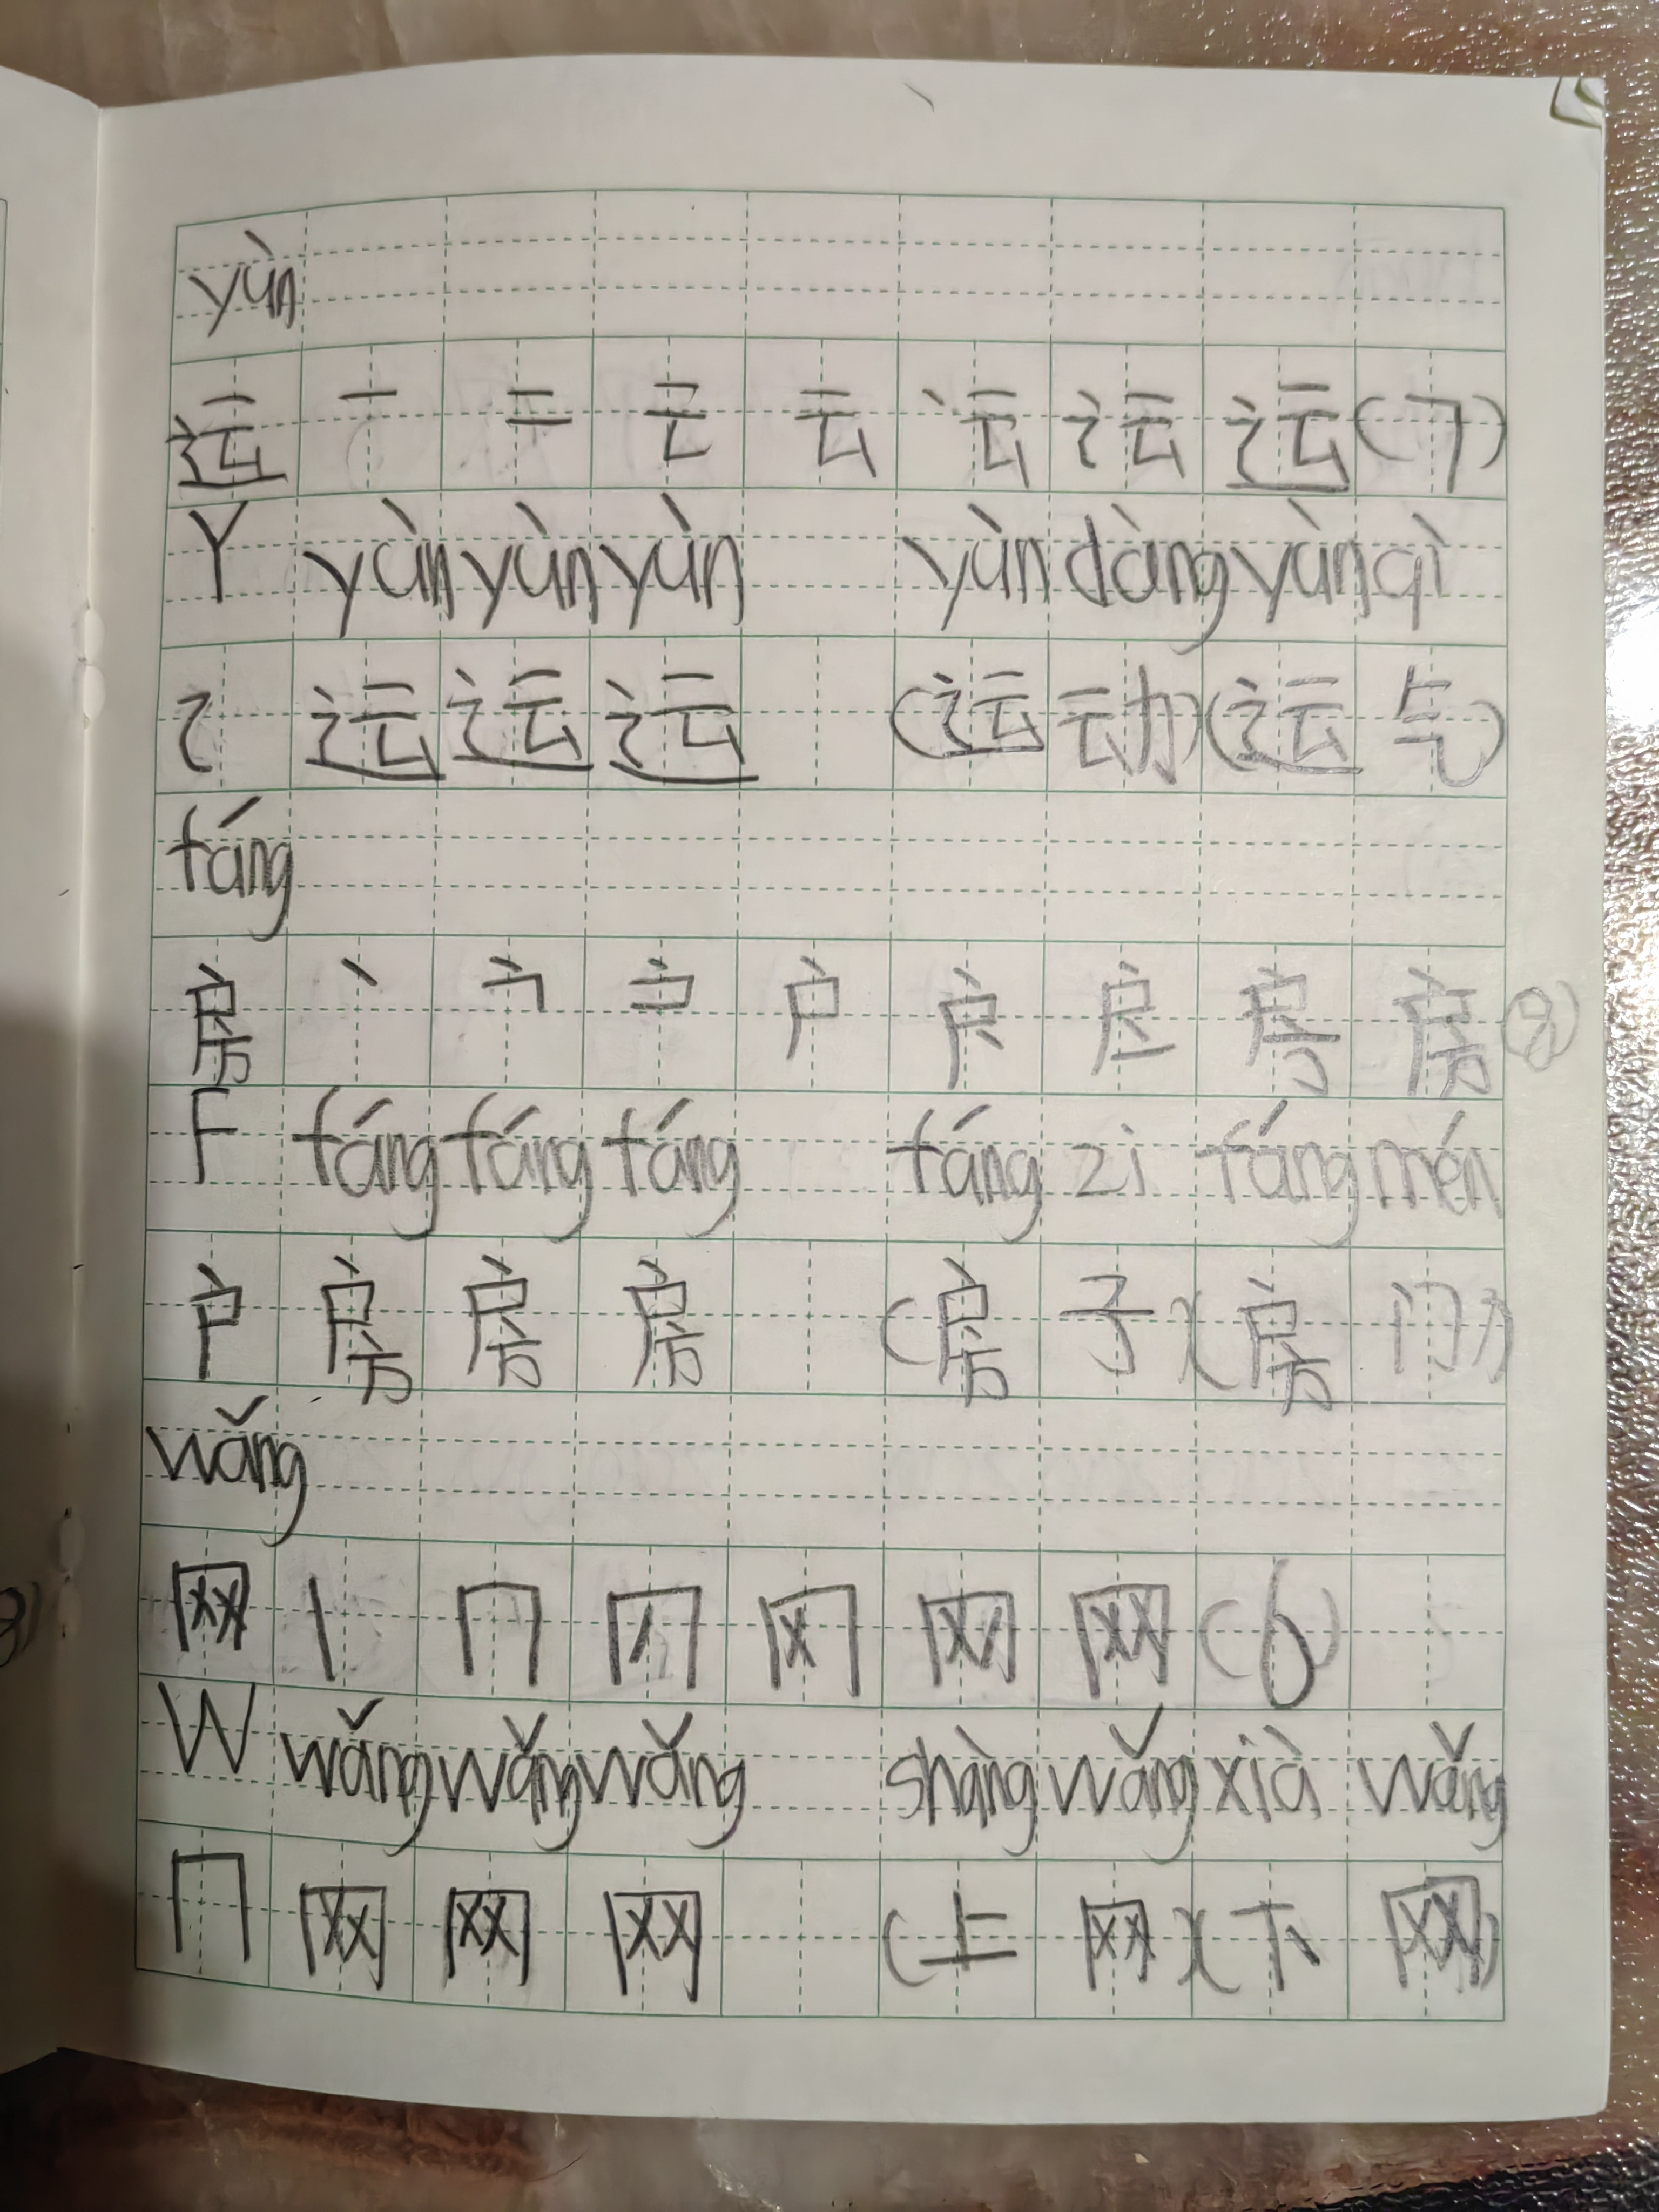 yùn
运 一 二 云 云 运 运 运 (7)
Y yùn yùn yùn yùn dàng yùn qì
辶 运 运 运 (运动)(运气)
fáng
房 丶 户 户 户 房 房 房 房 (8)
F fáng fáng fáng fáng zi fáng mén
户 房 房 房 (房子)(房门)
wǎng
网 丨 冂 冈 冈 网 网 (6)
W wǎng wǎng wǎng shàng wǎng xià wǎng
冂 网 网 网 (上网)(下网)